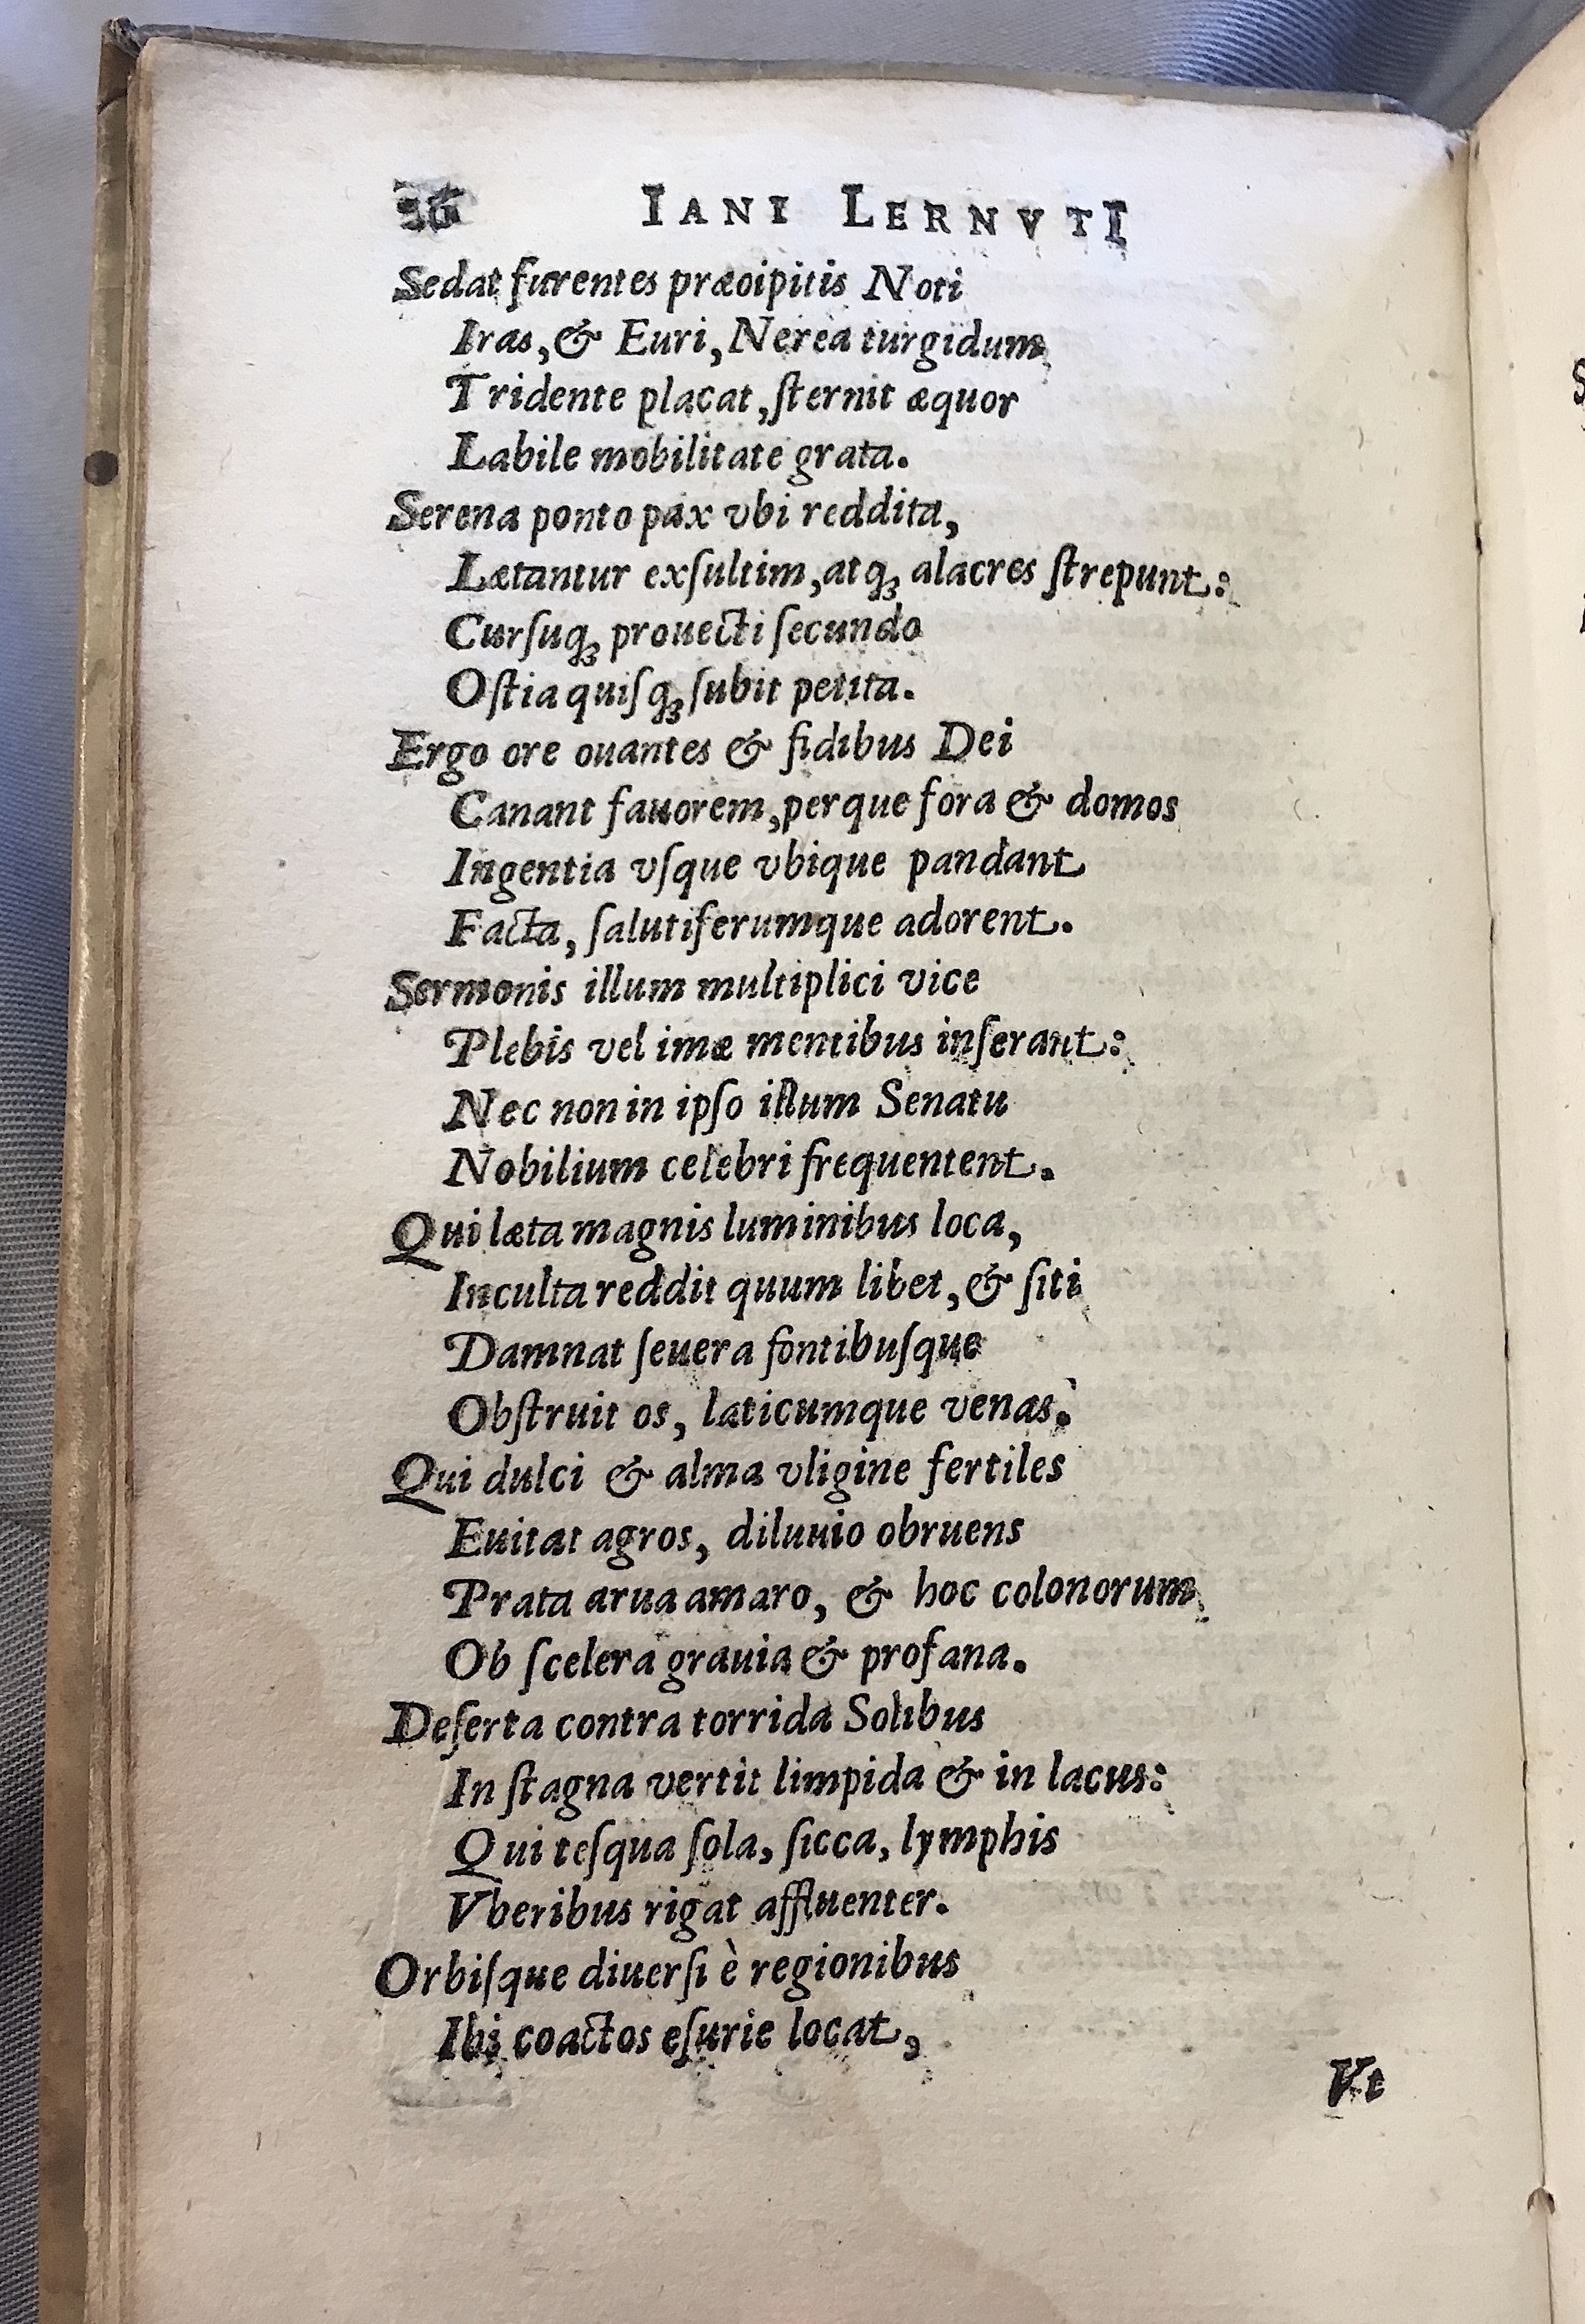 36 IANI LERNVTI
Sedat furentes præcipitis Noti
Iras, & Euri, Nerea turgidum
Tridente placat, ſternit æquor
Labile mobilitate grata.
Serena ponto pax vbi reddita,
Lætantur exſultim, atq; alacres ſtrepunt:
Curſuq; prouecti ſecundo
Oſtia quiſq; ſubit petita.
Ergo ore ouantes & fidibus Dei
Canant fauorem, perque fora & domos
Ingentia vſque vbique pandant
Facta, ſalutiferumque adorent.
Sermonis illum multiplici vice
Plebis vel imæ mentibus inſerant:
Nec non in ipſo illum Senatu
Nobilium celebri frequentent.
Qui læta magnis luminibus loca,
Inculta reddit quum libet, & ſiti
Damnat ſeuera fontibuſque
Obſtruit os, laticumque venas.
Qui dulci & alma vligine fertiles
Euitat agros, diluuio obruens
Prata arua amaro, & hoc colonorum
Ob ſcelera grauia & profana.
Deſerta contra torrida Solibus
In ſtagna vertit limpida & in lacus:
Qui teſqua ſola, ſicca, lymphis
Vberibus rigat affluenter.
Orbiſque diuerſi è regionibus
Ibi coactos eſurie locat,
Vt